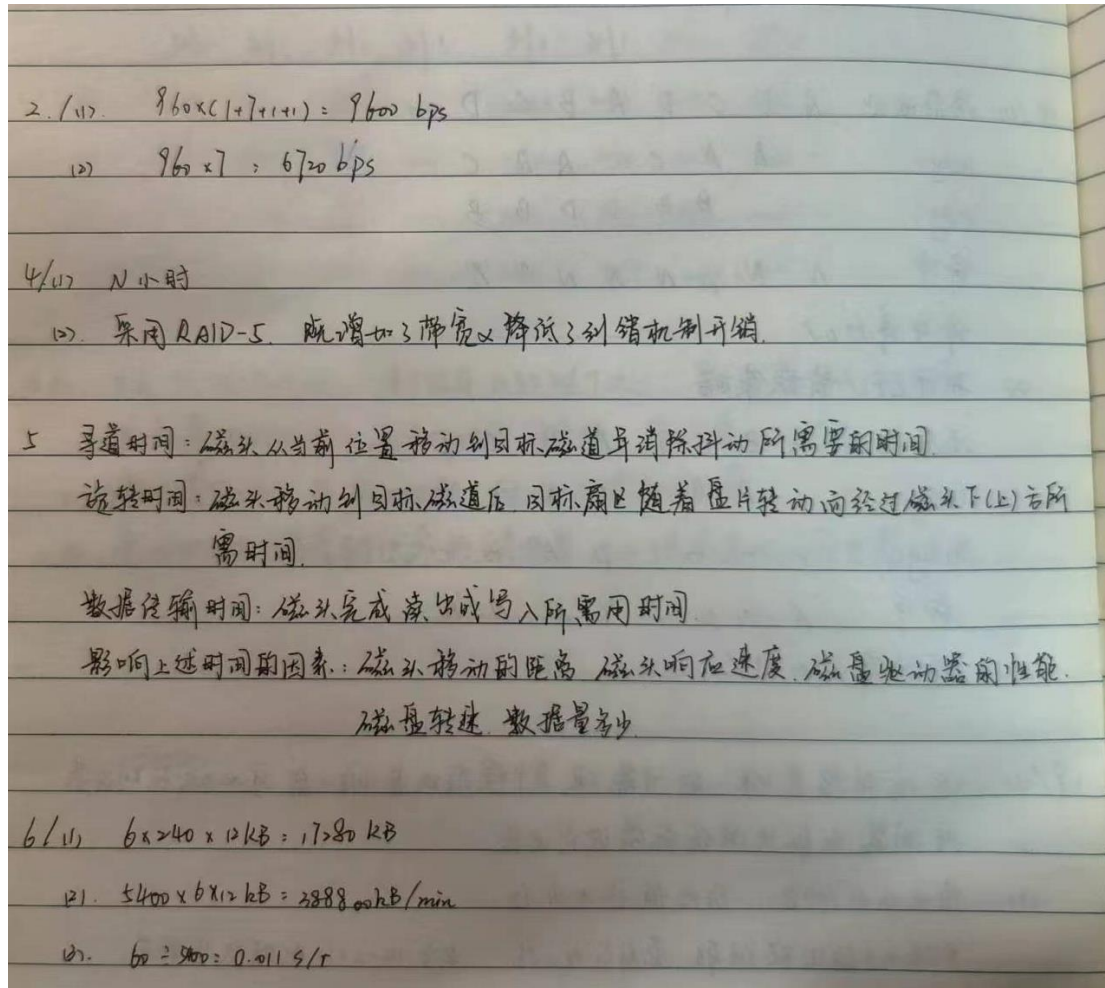 2./(1). 960×(1+7+1+1)=9600 bps
(2) 960×7=6720 bps
4/(1) N小时
(2). 采用RAID-5. 既增加了带宽又降低了纠错机制开销.
5 寻道时间:磁头从当前位置移动到目标磁道并消除抖动所需要的时间.
旋转时间:磁头移动到目标磁道后,目标扇区随着盘片转动而经过磁头下(上)方所
需时间.
数据传输时间:磁头完成读出或写入所需用时间.
影响上述时间的因素:磁头移动的距离 磁头响应速度.磁盘驱动器的性能.
磁盘转速.数据量多少
6/(1) 6×240×12kB=17280kB
(2). 5400×6×12kB=388800kB/min
(3). 60÷5400=0.011 s/r